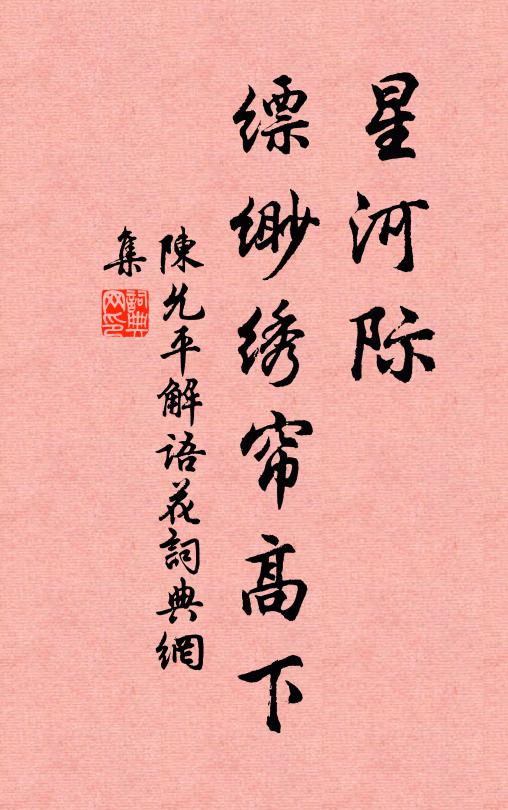 星河际
缥缈绣帘高下
陳允平解语花詞典網
集
詞典网印